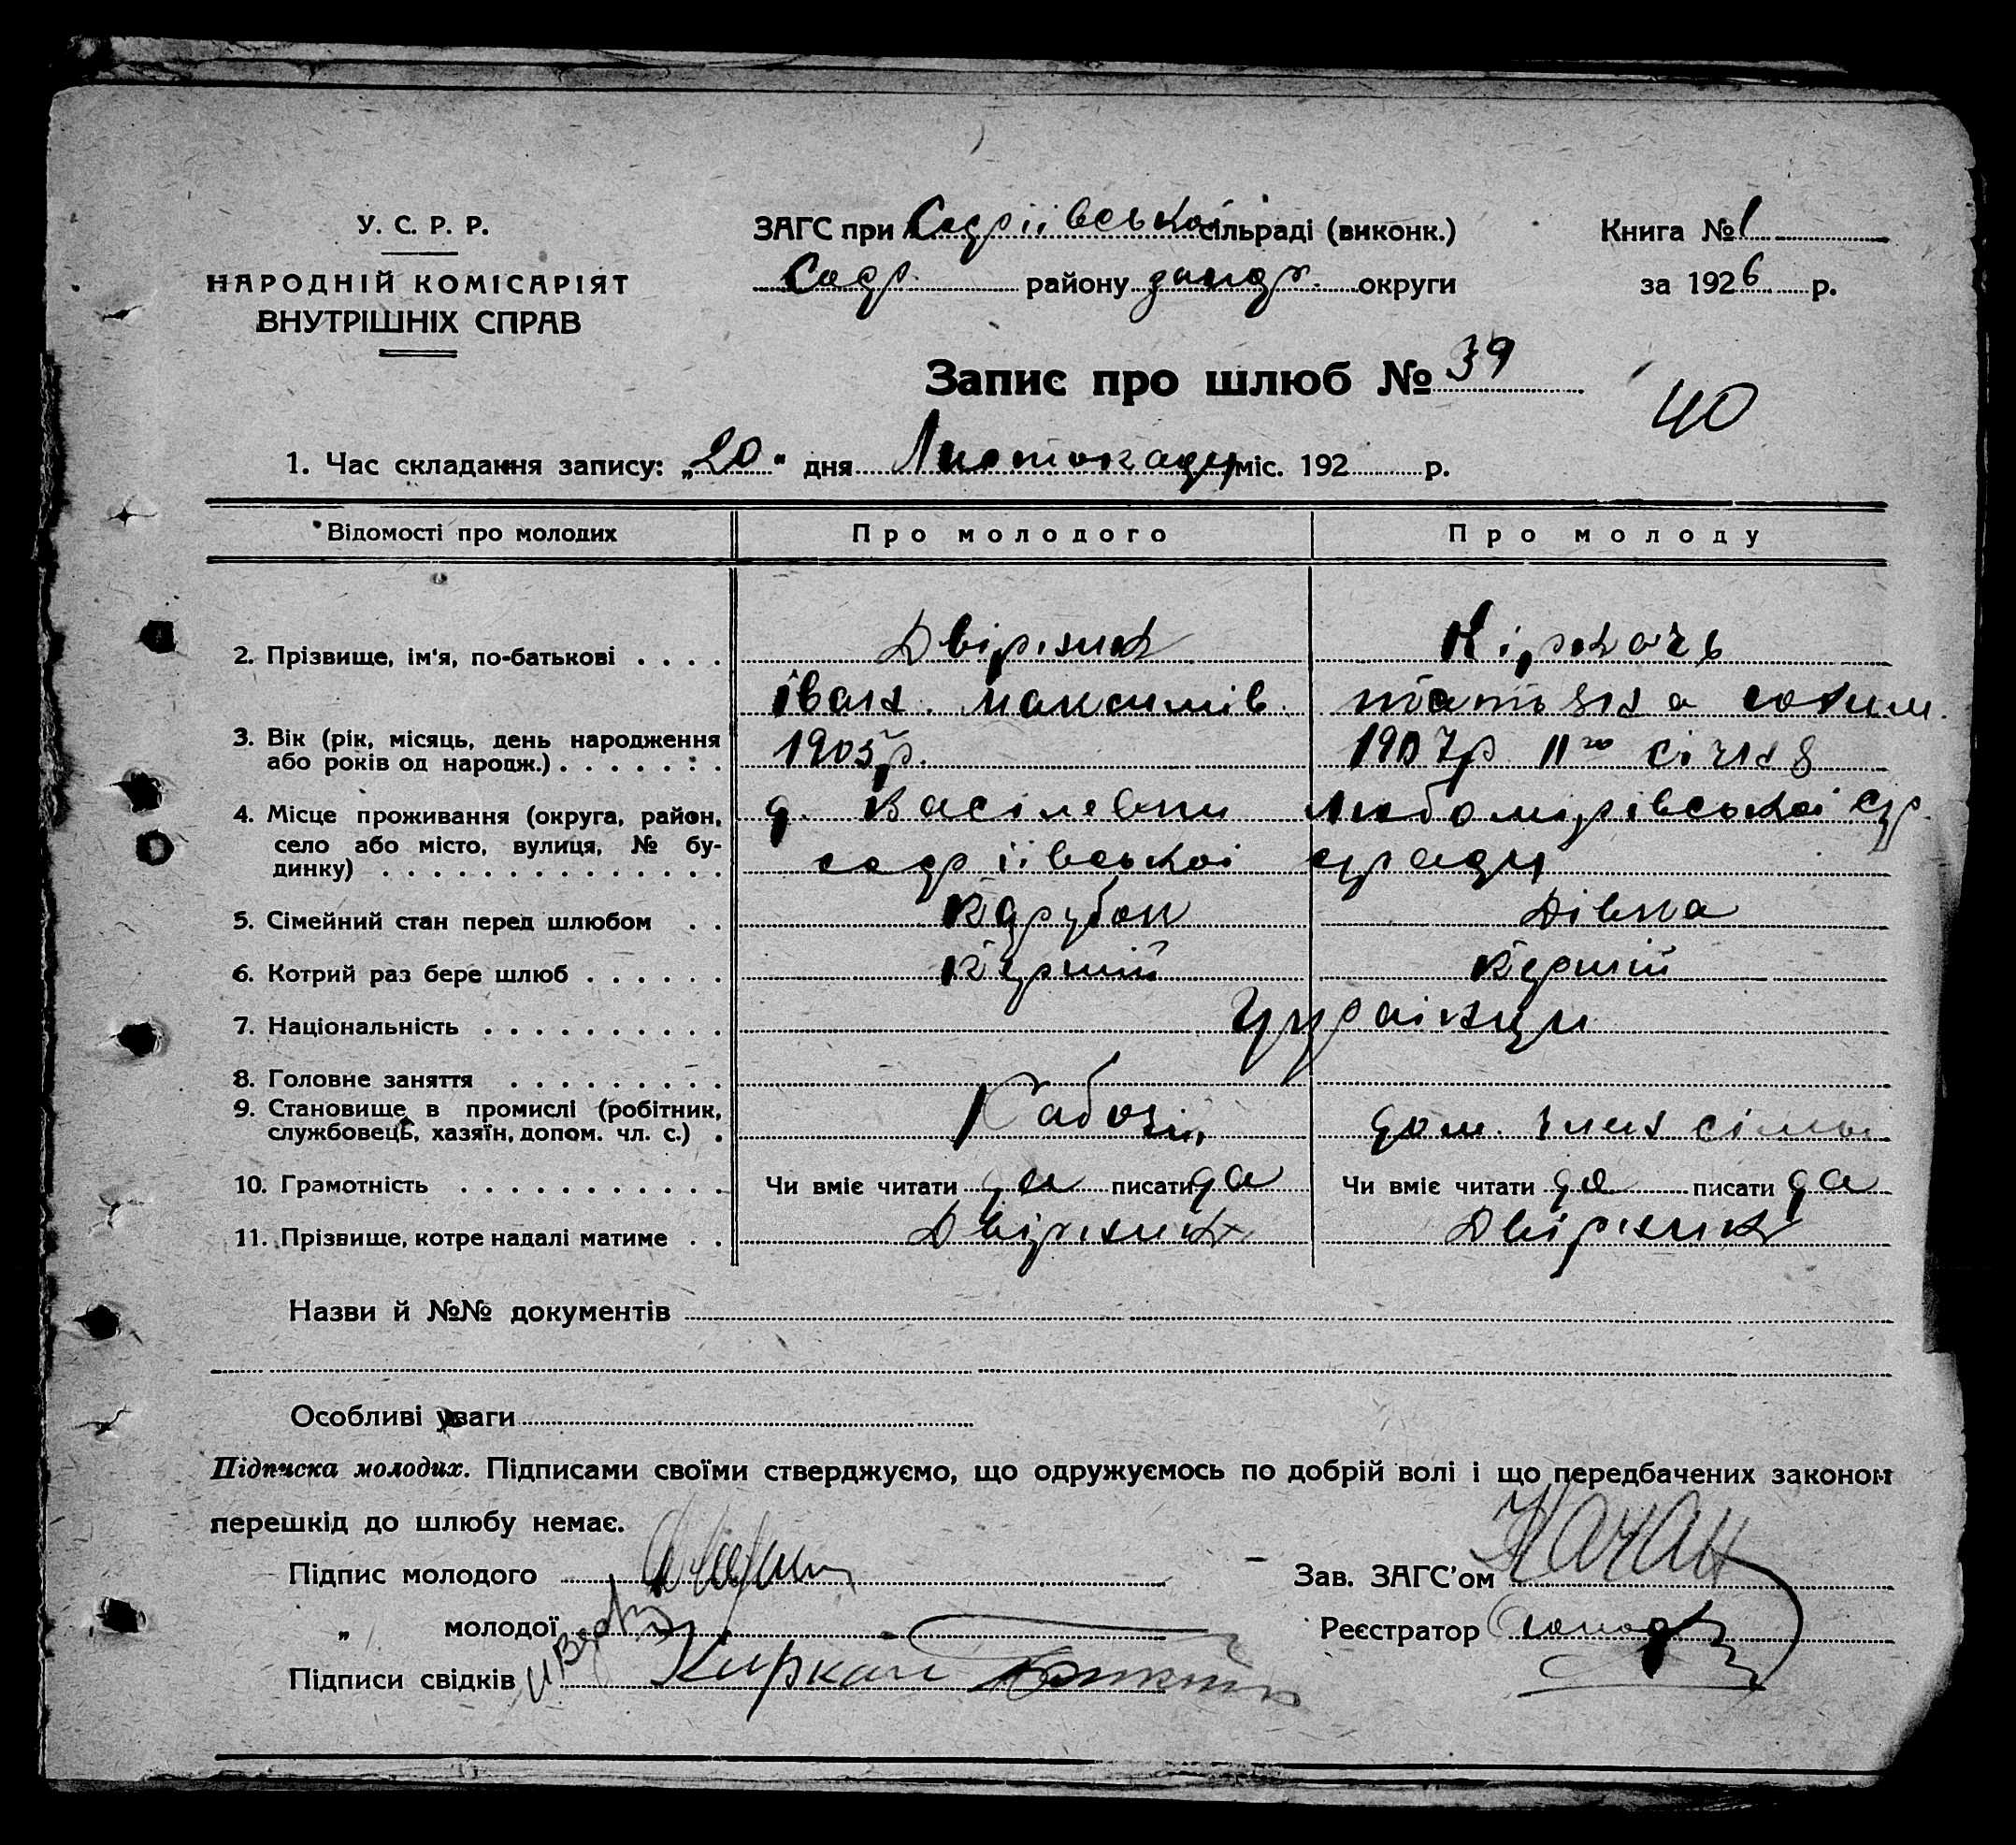 У. С. Р. Р.
НАРОДНІЙ КОМІСАРІЯТ
ВНУТРІШНІХ СПРАВ
ЗАГС при Содріівської сільраді (виконк.)
Содр. району запор. округи
Книга № 1
за 1926 р.
Запис про шлюб № 39
40
1. Час складання запису: „20" дня Листопаду міс. 192 р.
Відомості про молодих Про молодого Про молоду
2. Прізвище, ім'я, по-батькові . . . . Двірник Кіркачь
Іван Максимів. Татьяна
3. Вік (рік, місяць, день народження 1905р. 1907р 11го січня
або років од народж.) . . . . . . .
4. Місце проживання (округа, район, Любомірівської
село або місто, вулиця, № бу- содріівської сраду
динку) . . . . . . . . . . . . . .
5. Сімейний стан перед шлюбом . . Парубок Дівка
6. Котрий раз бере шлюб . . . . . . Перший Перший
7. Національність . . . . . . . . . . Украінци
8. Головне заняття . . . . . . . . .
9. Становище в промислі (робітник, Рабочій дом. член сімьи
службовець, хазяїн, допом. чл. с.) .
10. Грамотність . . . . . . . . . . . Чи вміє читати да писати да Чи вміє читати да писати да
11. Прізвище, котре надалі матиме . . Двірник Двірник
Назви й №№ документів
Особливі уваги
Підписка молодих. Підписами своїми стверджуємо, що одружуємось по добрій волі і що передбачених законом
перешкід до шлюбу немає.
Підпис молодого
Зав. ЗАГС'ом Качан
„ молодої
Реєстратор
Підписи свідків Киркач